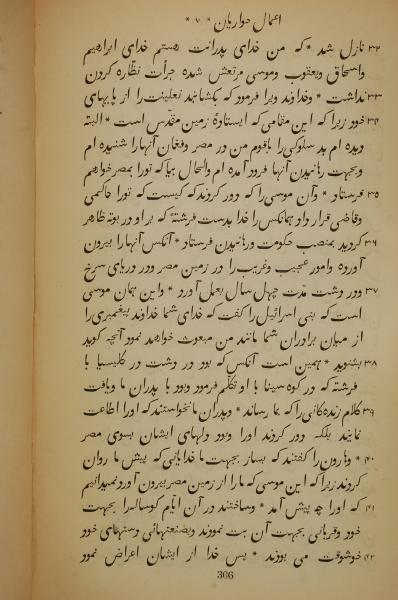 اعمال حواریان * ۷ *
۳۲ نازل شد * که من خدای پدرانت هستم خدای ابراهیم
واسحاق ویعقوب وموسی مرتعش شده جرأت نظاره کردن
۳۳ نداشت * وخداوند ویرا فرمود که بکشا بند نعلینت را از پایهای
۳۴ خود زیرا که این مقامی که ایستادهٔ زمین مقدس است * البته
دیده ام بد سلوکی را باقوم من در مصر وفغان آنها را شنیده ام
وبجهت رهانیدن آنها فرود آمده ام والحال بیا که تورا بمصر خواهم
۳۵ فرستاد * وآن موسی را که دور کردند که کیست که تورا حاکمی
وقاضی قرار داد همانکس را خدا بدست فرشتهٔ که بر او در بوته ظاهر
۳۶ گردید بمنصب حکومت ورهانیدن فرستاد * آنکس آنها را بیرون
آورده وامور عجیب وغریب را در زمین مصر ودر دریای سرخ
۳۷ ودر دشت مدّت چهل سال بعمل آورد * واین همان موسی
است که بنی اسرائیل را گفت که خدای شما خداوند پیغمبری را
از میان برادران شما مانند من مبعوث خواهد نمود آنچه گوید
۳۸ بشنوید * همین است آنکس که بود در دشت در کلیسیا با
فرشته که در کوه سینا با او تکلّم فرمود وبود با پدران ما ویافت
۳۹ کلام زنده‌گانی را که بما رساند * وپدران ما نخواستند که اورا اطاعت
نمایند بلکه دور کردند اورا وبود دلهای ایشان بسوی مصر
۴۰ * وهارون را گفتند که بساز بجهت ما خدایانی که پیش ما روان
گردند زیرا که این موسی که ما را از زمین مصر بیرون آورد نمیدانیم
۴۱ که اورا چه پیش آمد * وساختند در آن ایّام گوساله را بجهت
خود وقربانی بجهت آن بت نمودند وبصنعتهای دستهای خود
۴۲ خوشوقت می بودند * پس خدا از ایشان اعراض نمود
306